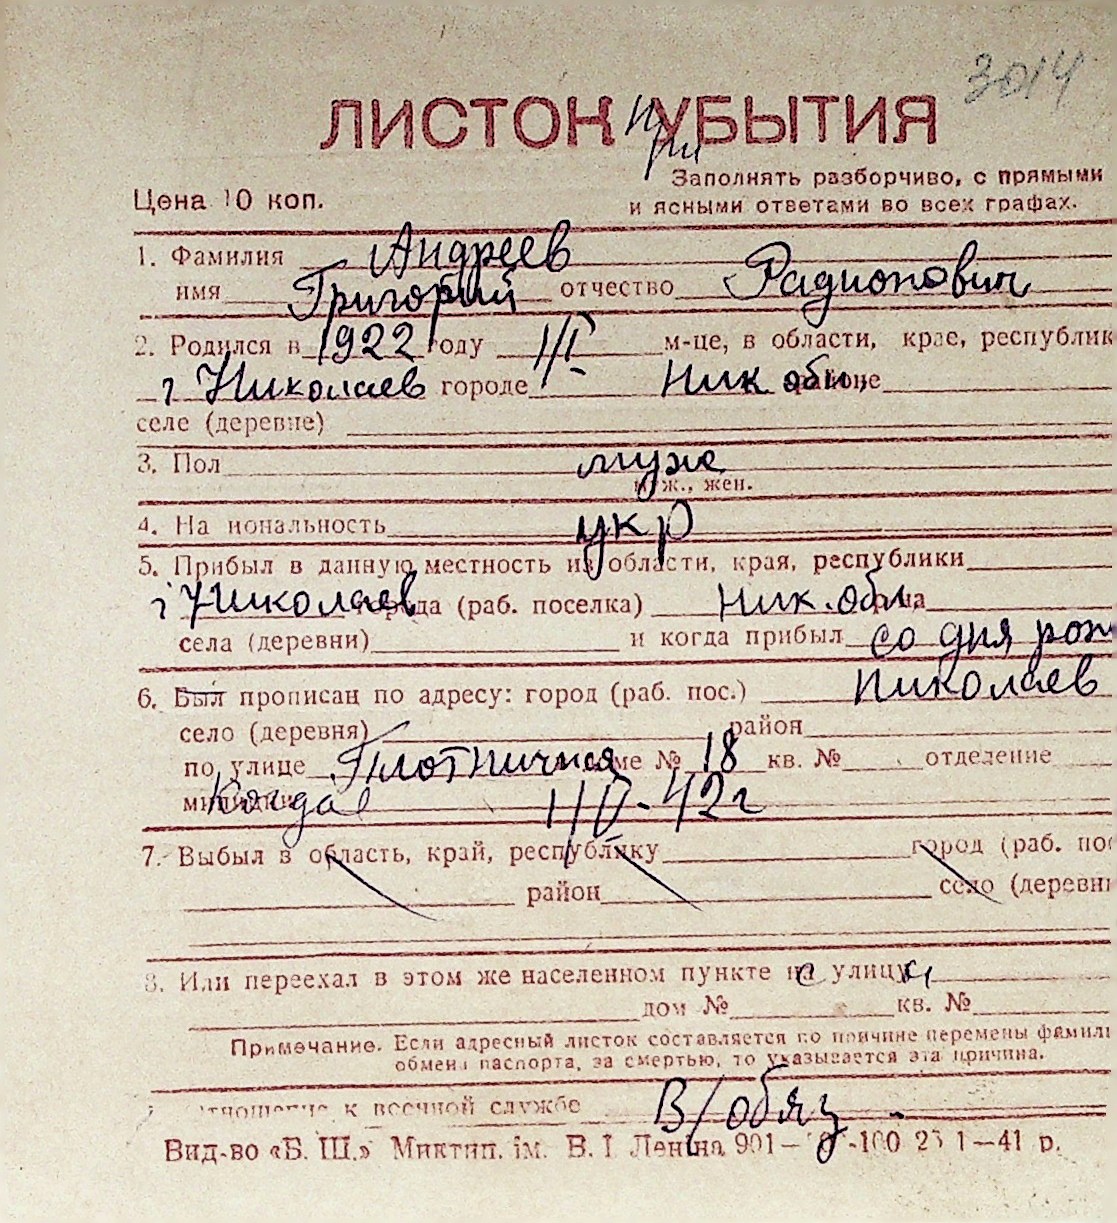 3014
ЛИСТОК УБЫТИЯ
при
Заполнять разборчиво, с прямыми
Цена 10 коп. и ясными ответами во всех графах.
1. Фамилия Андреев
имя Григорий отчество Радионович
2. Родился в 1922 году III м-це, в области, крае, республик
г Николаев городе Ник обл, районе
селе (деревне)
3. Пол муж
муж., жен.
4. Национальность укр
5. Прибыл в данную местность из области, края, республики
г Николаев города (раб. поселка) Ник. обл,
села (деревни) и когда прибыл со дня рож
6. Был прописан по адресу: город (раб. пос.) Николаев
село (деревня) район
по улице Плотничная доме № 18 кв. № отделение
милиции Когда
42 г
7. Выбыл в область, край, республику город (раб. пос
район село (деревни
8. Или переехал в этом же населенном пункте на улицу
дом № кв. №
Примечание. Если адресный листок составляется по причине перемены фамили
обмена паспорта, за смертью, то указывается эта причина.
отношение к военной службе В/обяз.
Вид-во «Б. Ш.» Миктип. ім. В. І Леніна 901— -100 23 1—41 р.